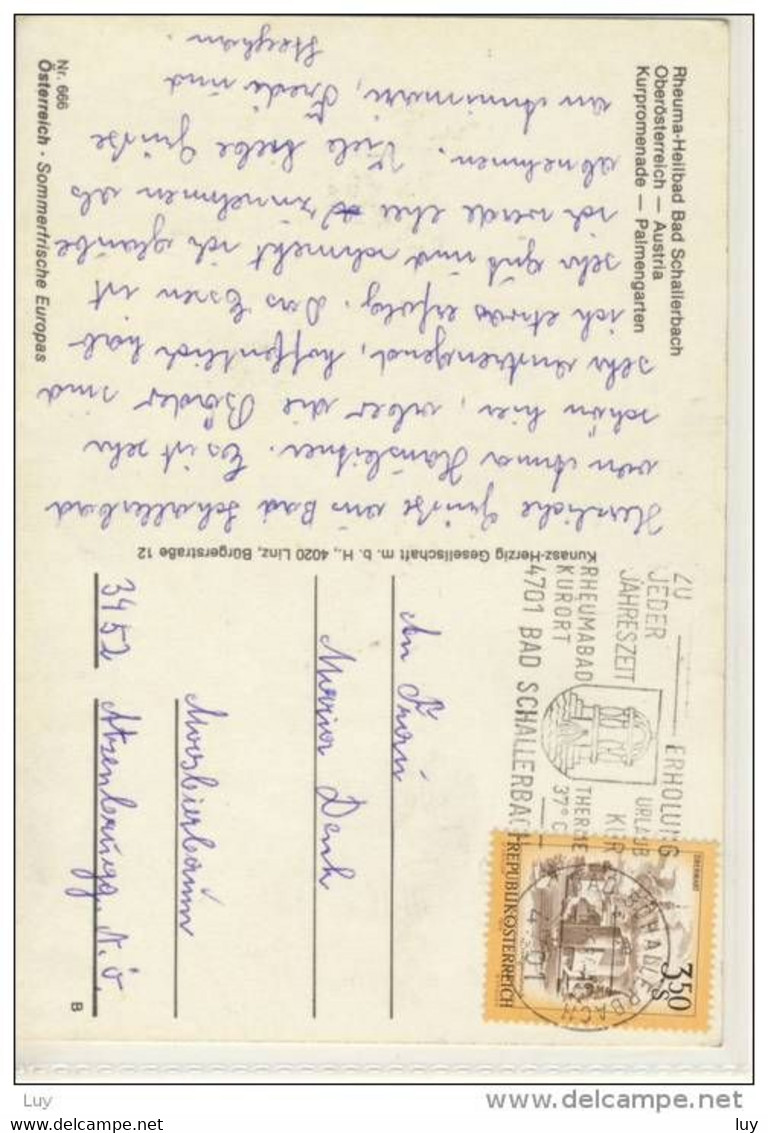 Rheuma-Heilbad Bad Schallerbach
Oberösterreich — Austria
Kurpromenade — Palmengarten
Herzliche Grüße aus Bad Schallerbad
von Anna Hausleitner. Es ist sehr
schön hier, aber die Bäder sind
sehr anstrengend, hoffentlich hab
ich etwas erfolg. Das Essen ist
sehr gut und schmeckt ich glaube
ich werde eher zunehmen als
abnehmen. Viele liebe Grüße
an Annimari, Fredi und
Stephan.
Nr. 666
Österreich · Sommerfrische Europas
Kunasz-Herzig Gesellschaft m. b. H., 4020 Linz, Bürgerstraße 12
ZU JEDER JAHRESZEIT
ERHOLUNG URLAUB KUR
RHEUMABAD KURORT
THERME 37° C
4701 BAD SCHALLERBACH
OBERWART
3.50 S
REPUBLIK ÖSTERREICH
BAD SCHALLERBACH
4701
An Frau
Maria Denk
Moosbierbaum
3452 Atzenbrugg, N.Ö.
B
Luy
delcampe.net
www.delcampe.com
luy